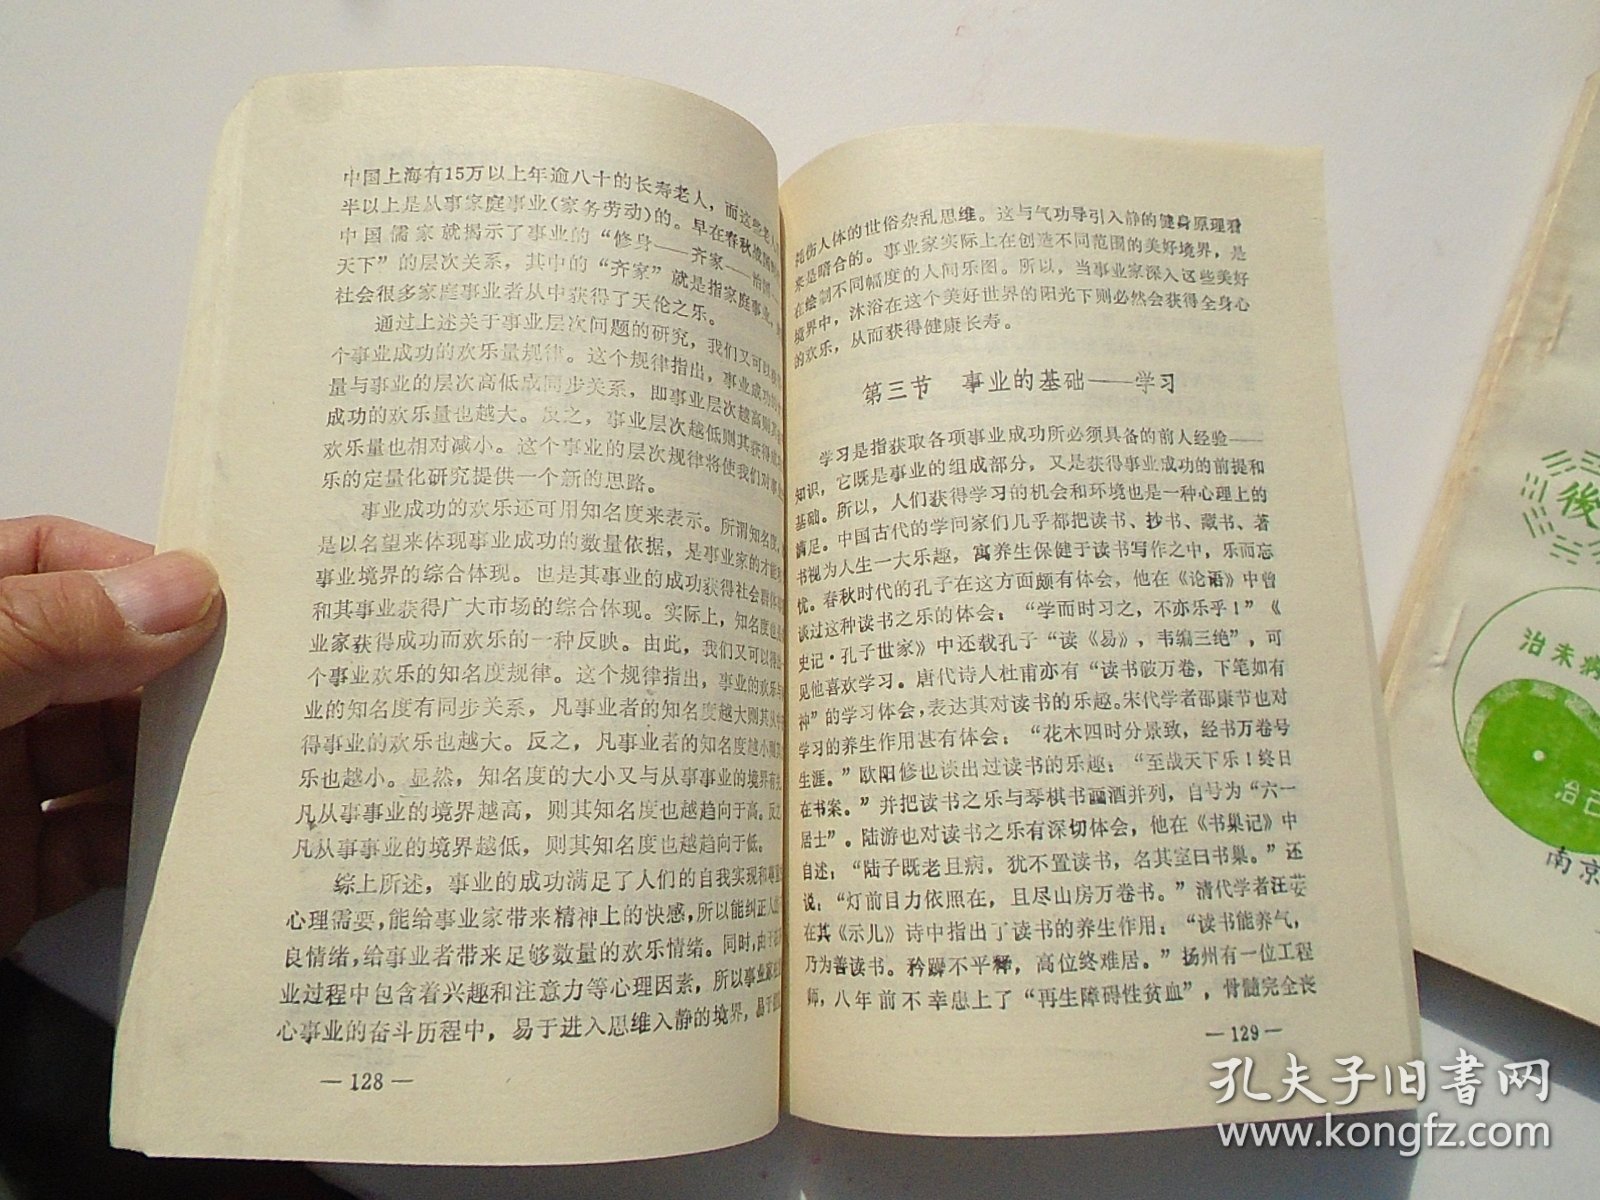 中国上海有15万以上年逾八十的长寿老人，而这些老人
半以上是从事家庭事业（家务劳动）的。早在春秋战国
中国儒家就揭示了事业的“修身——齐家——治国——
天下”的层次关系，其中的“齐家”就是指家庭事业，
社会很多家庭事业者从中获得了天伦之乐。
通过上述关于事业层次问题的研究，我们又可以
个事业成功的欢乐量规律。这个规律指出，事业成功的
量与事业的层次高低成同步关系，即事业层次越高则其
成功的欢乐量也越大。反之，事业层次越低则其获得
欢乐量也相对减小。这个事业的层次规律将使我们对事业
乐的定量化研究提供一个新的思路。
事业成功的欢乐还可用知名度来表示。所谓知名度，
是以名望来体现事业成功的数量依据，是事业家的才能
事业境界的综合体现。也是其事业的成功获得社会群体
和其事业获得广大市场的综合体现。实际上，知名度也
业家获得成功而欢乐的一种反映。由此，我们又可以得
个事业欢乐的知名度规律。这个规律指出，事业的欢乐与
业的知名度有同步关系，凡事业者的知名度越大则其从
得事业的欢乐也越大。反之，凡事业者的知名度越小则其
乐也越小。显然，知名度的大小又与从事事业的境界有关
凡从事事业的境界越高，则其知名度也越趋向于高。反之
凡从事事业的境界越低，则其知名度也越趋向于低。
综上所述，事业的成功满足了人们的自我实现和尊重
心理需要，能给事业家带来精神上的快感，所以能纠正人
良情绪，给事业者带来足够数量的欢乐情绪。同时，由于
业过程中包含着兴趣和注意力等心理因素，所以事业家
心事业的奋斗历程中，易于进入思维入静的境界，易于
— 128 —
扰伤人体的世俗杂乱思维。这与气功导引入静的健身原理看
来是暗合的。事业家实际上在创造不同范围的美好境界，是
在绘制不同幅度的人间乐图。所以，当事业家深入这些美好
境界中，沐浴在这个美好世界的阳光下则必然会获得全身心
的欢乐，从而获得健康长寿。
第三节　事业的基础——学习
学习是指获取各项事业成功所必须具备的前人经验——
知识，它既是事业的组成部分，又是获得事业成功的前提和
基础。所以，人们获得学习的机会和环境也是一种心理上的
满足。中国古代的学问家们几乎都把读书、抄书、藏书、著
书视为人生一大乐趣，寓养生保健于读书写作之中，乐而忘
忧。春秋时代的孔子在这方面颇有体会，他在《论语》中曾
谈过这种读书之乐的体会：“学而时习之，不亦乐乎！”《
史记·孔子世家》中还载孔子“读《易》，韦编三绝”，可
见他喜欢学习。唐代诗人杜甫亦有“读书破万卷，下笔如有
神”的学习体会，表达其对读书的乐趣。宋代学者邵康节也对
学习的养生作用甚有体会：“花木四时分景致，经书万卷号
生涯。”欧阳修也谈出过读书的乐趣：“至哉天下乐！终日
在书案。”并把读书之乐与琴棋书画酒并列，自号为“六一
居士”。陆游也对读书之乐有深切体会，他在《书巢记》中
自述：“陆子既老且病，犹不置读书，名其室曰书巢。”还
说：“灯前目力依照在，且尽山房万卷书。”清代学者汪
在其《示儿》诗中指出了读书的养生作用：“读书能养气，
乃为善读书。矜躁不平释，高位终难居。”扬州有一位工程
师，八年前不幸患上了“再生障碍性贫血”，骨髓完全丧
— 129 —
後
治未病
治己
南京
孔夫子旧书网
www.kongfz.com